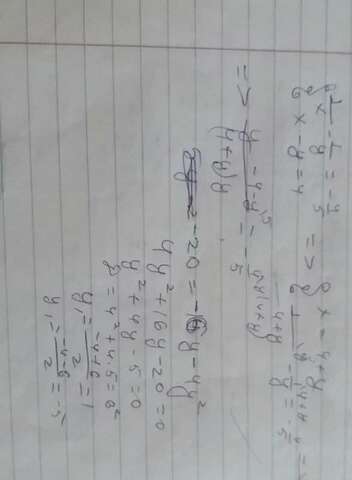 1/x - 1/y = -4/5 => x = 4+y
x - y = 4
1/(4+y) - 1/y = -4/5
=> (y - 4 - y)/((4+y)y) = -4/5
-20 = -16y - 4y²
4y² + 16y - 20 = 0
y² + 4y - 5 = 0
D = 4² + 4.5 = 6²
y₁ = (-4+6)/2 = 1
y₁ = (-4-6)/2 = -5